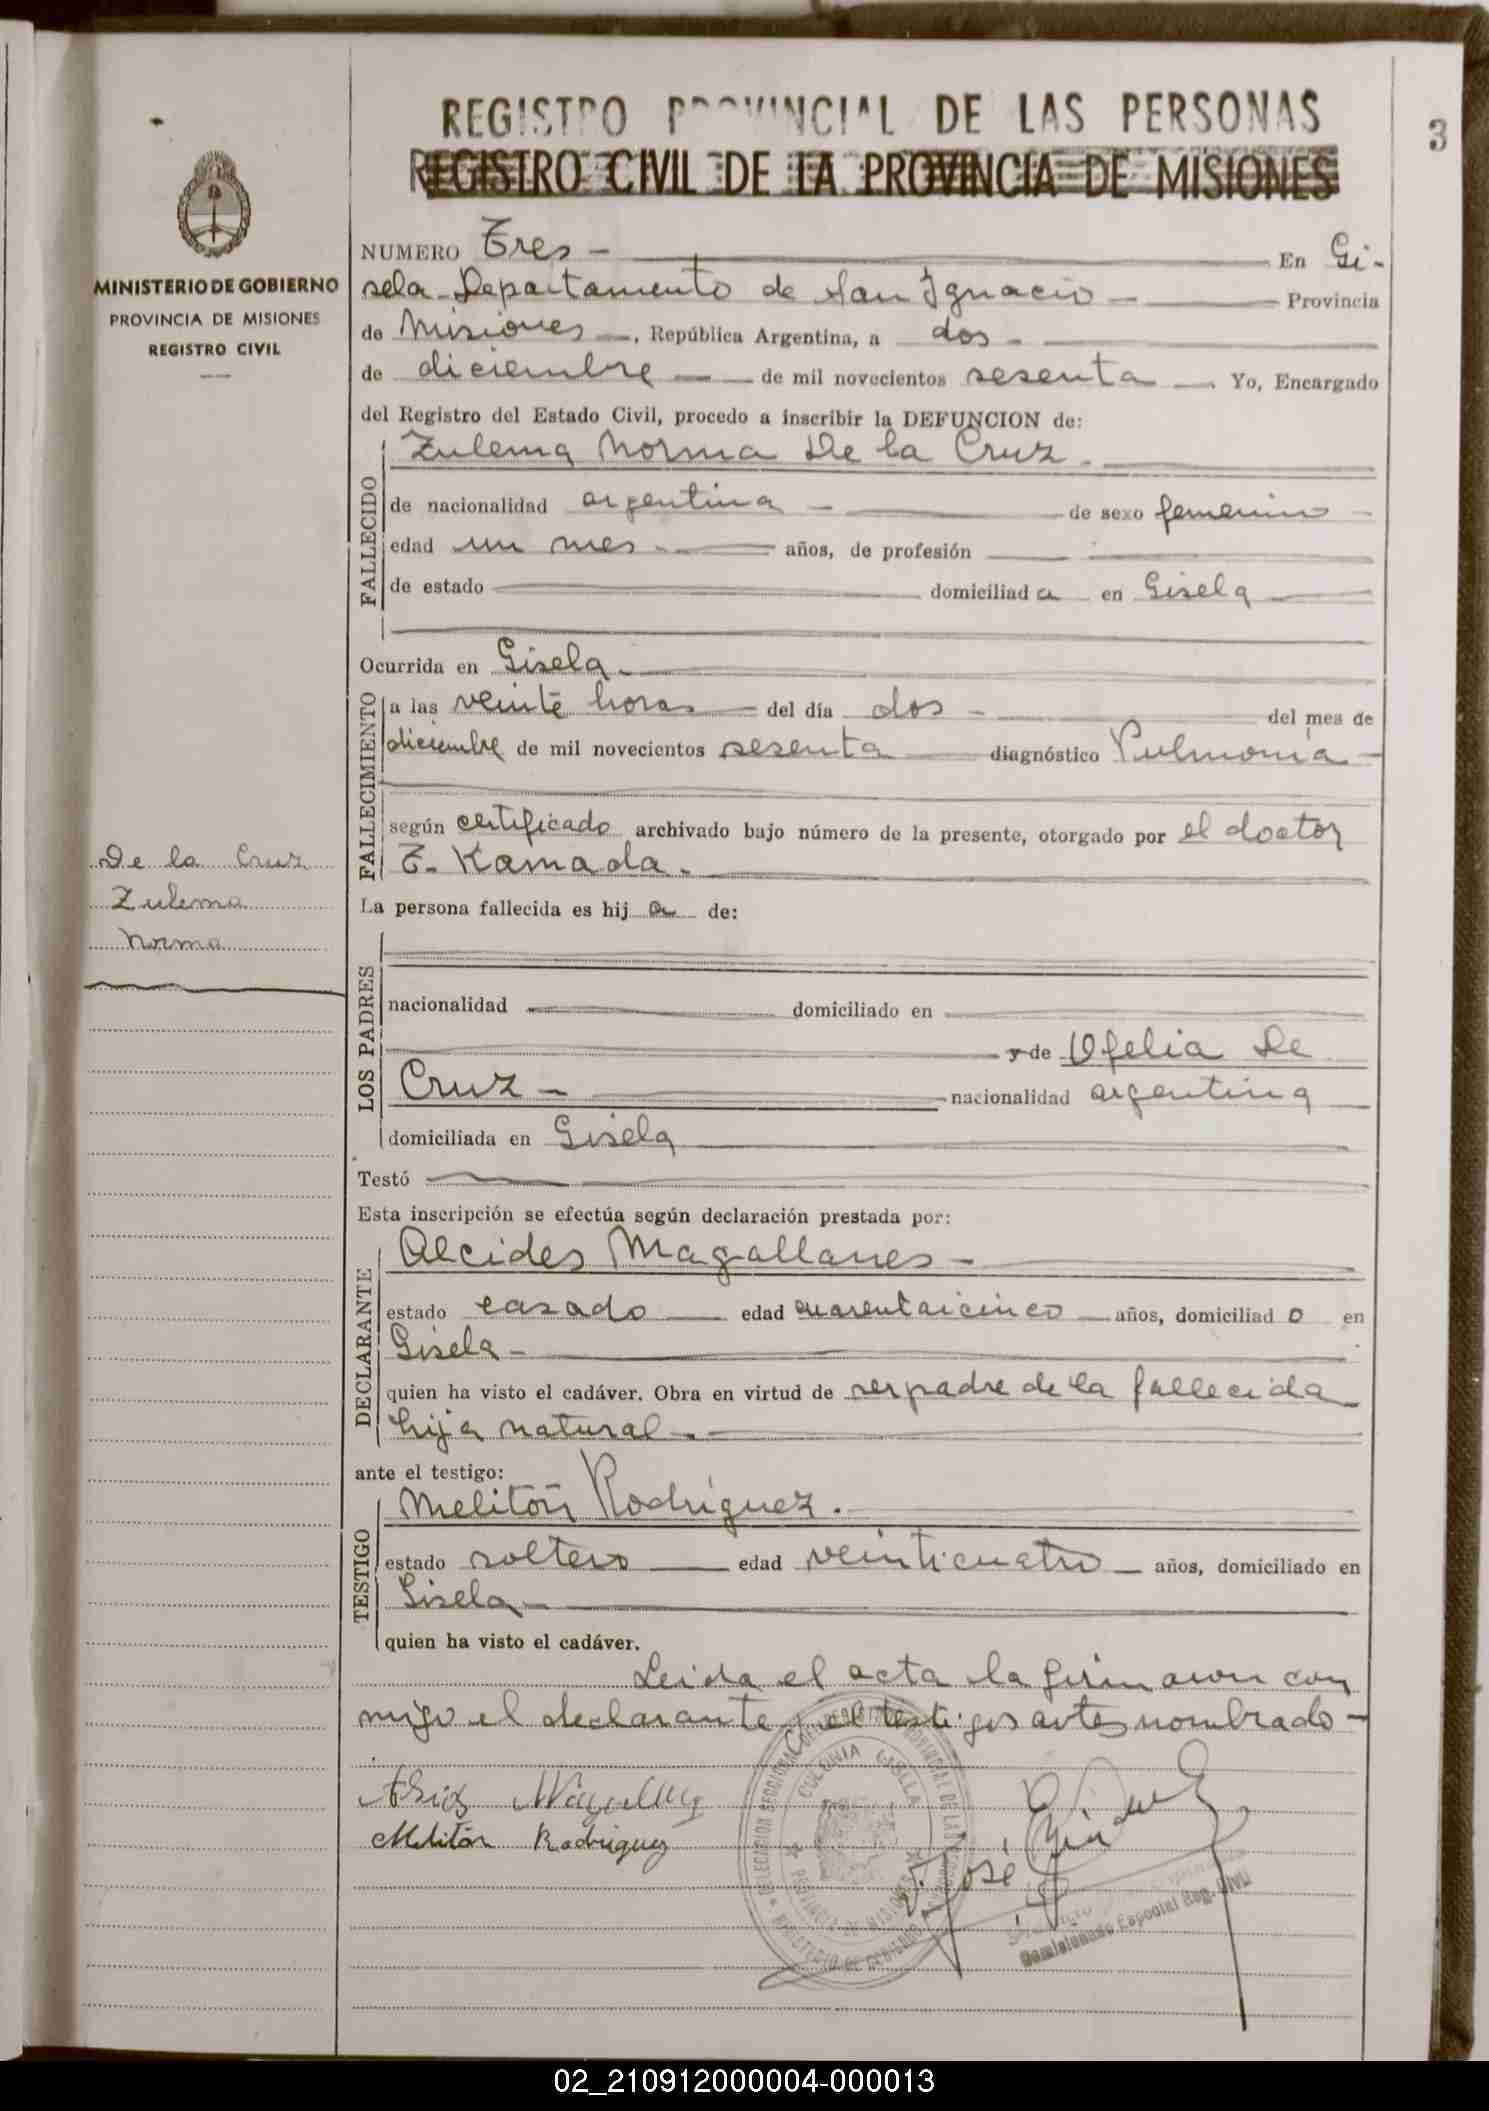 3
REGISTRO PROVINCIAL DE LAS PERSONAS
REGISTRO CIVIL DE LA PROVINCIA DE MISIONES
MINISTERIO DE GOBIERNO
PROVINCIA DE MISIONES
REGISTRO CIVIL
De la Cruz
Zulema
Norma
NUMERO Tres - En Gi-
sela - Departamento de San Ignacio - Provincia
de Misiones, República Argentina, a dos -
de diciembre de mil novecientos sesenta. Yo, Encargado
del Registro del Estado Civil, procedo a inscribir la DEFUNCION de:
FALLECIDO
Zulema Norma De la Cruz
de nacionalidad argentina - de sexo femenino
edad un mes años, de profesión
de estado domiciliad a en Gisela
Ocurrida en Gisela.
FALLECIMIENTO
a las veinte horas del día dos - del mes de
diciembre de mil novecientos sesenta diagnóstico Pulmonía
según certificado archivado bajo número de la presente, otorgado por el doctor
T. Kamada.
La persona fallecida es hij a de:
LOS PADRES
nacionalidad domiciliado en
y de Ofelia De
Cruz - nacionalidad argentina
domiciliada en Gisela
Testó
Esta inscripción se efectúa según declaración prestada por:
DECLARANTE
Alcides Magallanes -
estado casado edad cuarentaicinco años, domiciliad o en
Gisela -
quien ha visto el cadáver. Obra en virtud de ser padre de la fallecida
hija natural.
ante el testigo:
TESTIGO
Melitón Rodríguez.
estado soltero edad veinticuatro años, domiciliado en
Gisela -
quien ha visto el cadáver.
Leida el acta la firmaron con
migo el declarante y el testigos antes nombrado -
Melitón Rodriguez
José
COLONIA GISELA
PROVINCIA DE MISIONES
Comisionado Especial Reg. Civil
02_210912000004-000013